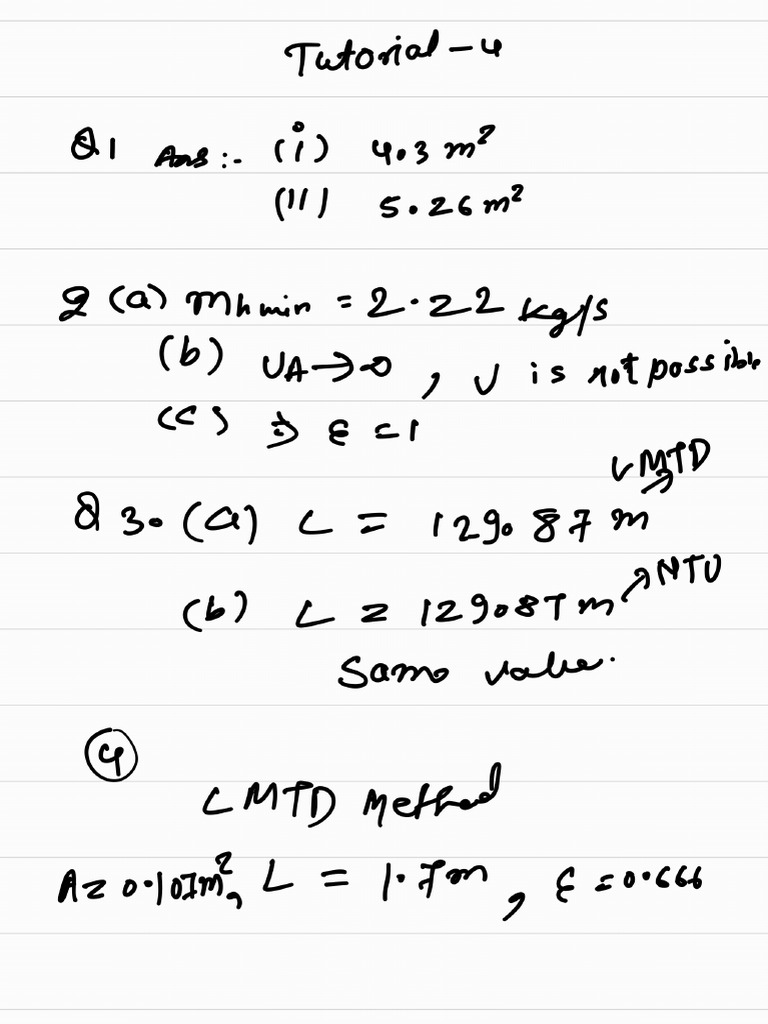 Tutorial-4
Q1 Ans:- (i) 4.3 m²
(II) 5.26 m²
2 (a) mh min = 2.22 kg/s
(b) UA→∞, U is not possible
(c) ⇒ ε = 1
LMTD
Q 3. (a) L = 129.87 m
NTU
(b) L = 129.87 m
Same value.
④
LMTD Method
A = 0.107m², L = 1.7m, ε = 0.666